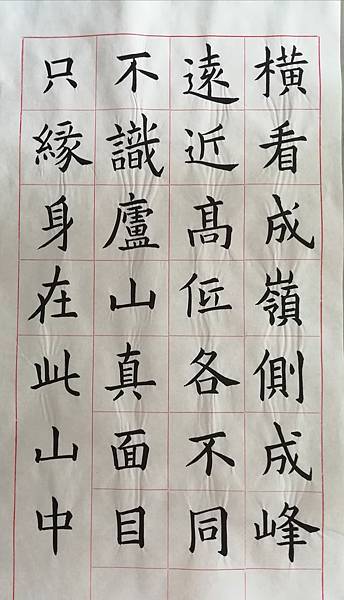 橫看成嶺側成峰
遠近髙低各不同
不識廬山真面目
只緣身在此山中